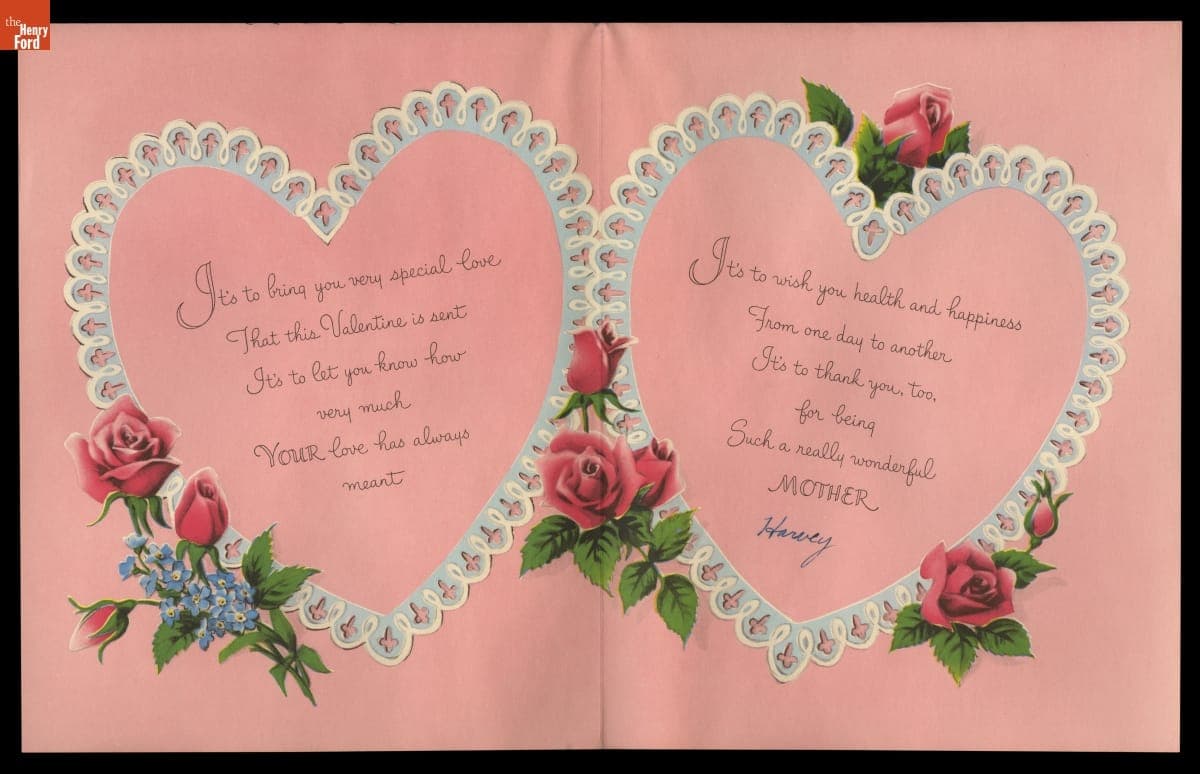 the
Henry
Ford
It's to bring you very special love
That this Valentine is sent
It's to let you know how
very much
YOUR love has always
meant
It's to wish you health and happiness
From one day to another
It's to thank you, too,
for being
Such a really wonderful
MOTHER
Harvey